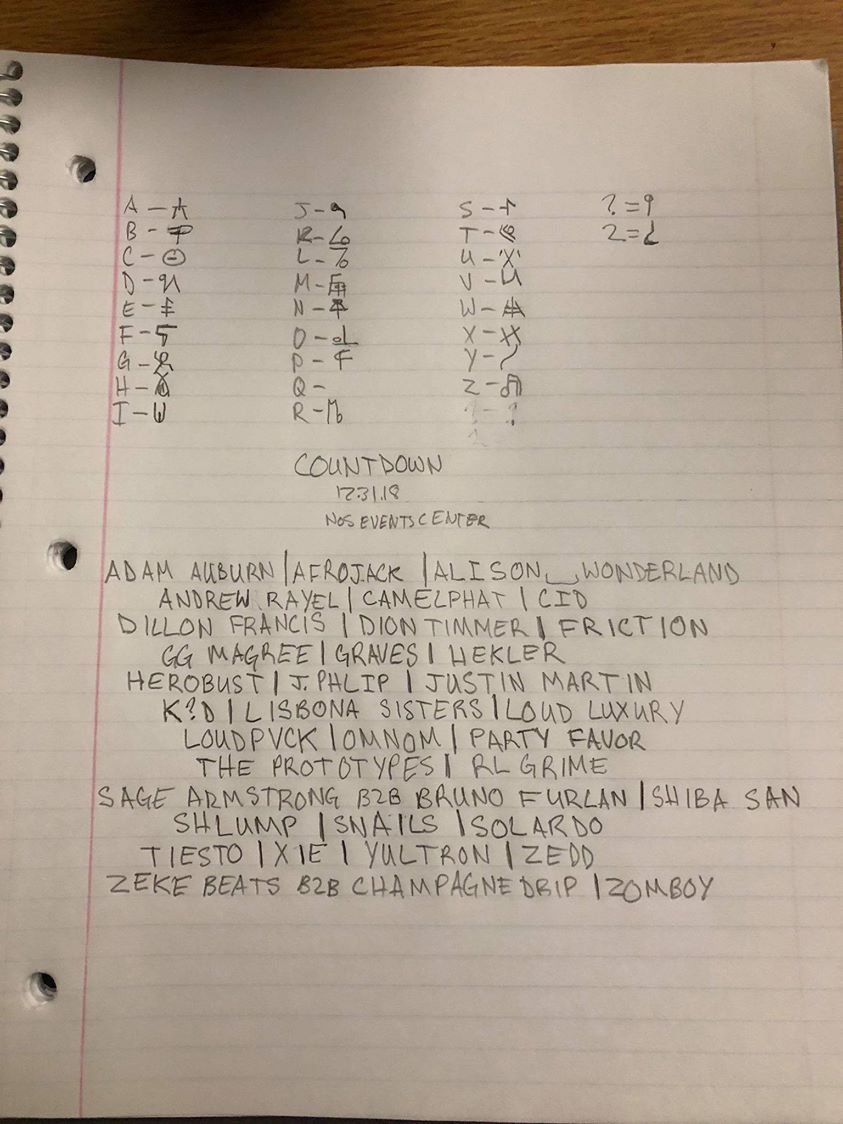 A - J - S - ? =
B - K - T - 2 =
C - L - U -
D - M - V -
E - N - W -
F - O - X -
G - P - Y -
H - Q - Z -
I - R -
COUNTDOWN
12.31.18
NOS EVENTS CENTER
ADAM AUBURN | AFROJACK | ALISON WONDERLAND
ANDREW RAYEL | CAMELPHAT | CID
DILLON FRANCIS | DION TIMMER | FRICTION
GG MAGREE | GRAVES | HEKLER
HEROBUST | J. PHLIP | JUSTIN MARTIN
K?D | LISBONA SISTERS | LOUD LUXURY
LOUDPVCK | OMNOM | PARTY FAVOR
THE PROTOTYPES | RL GRIME
SAGE ARMSTRONG B2B BRUNO FURLAN | SHIBA SAN
SHLUMP | SNAILS | SOLARDO
TIESTO | XIE | YULTRON | ZEDD
ZEKE BEATS B2B CHAMPAGNE DRIP | ZOMBOY